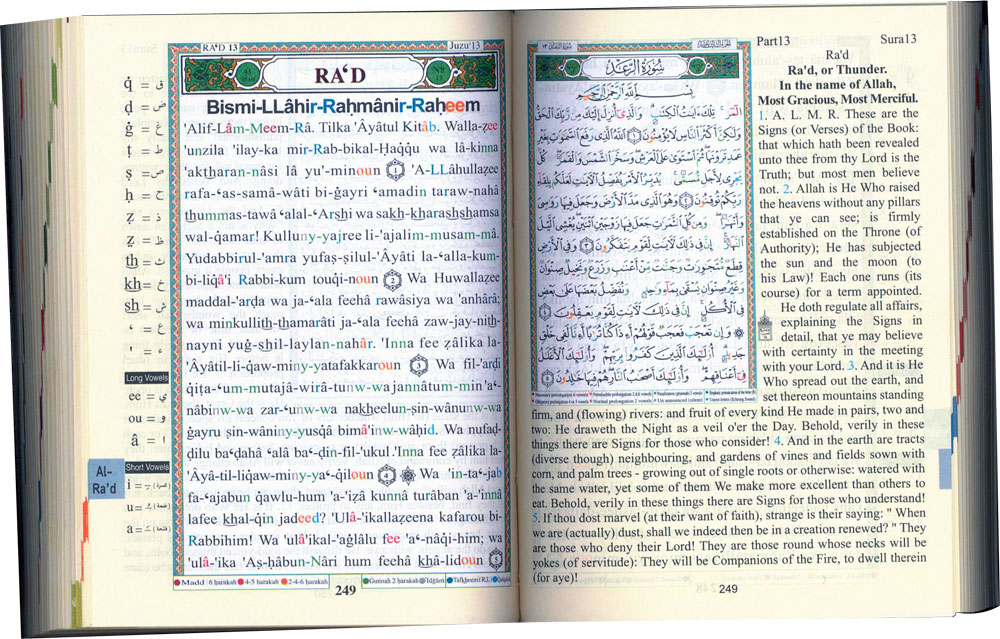 RA'D 13
Juzu'13
RA‘D
Bismi-LLâhir-Rahmânir-Raheem
'Alif-Lâm-Meem-Râ. Tilka 'Âyâtul Kitâb. Walla-zee
'unzila 'ilay-ka mir-Rab-bikal-Ḥaqqu wa lâ-kinna
'aktharan-nâsi lâ yu'-minoun 1 'A-LLâhullazee
rafa-‘as-samâ-wâti bi-ġayri ‘amadin taraw-nahâ
thummas-tawâ ‘alal-‘Arshi wa sakh-kharashshamsa
wal-qamar! Kulluny-yajree li-'ajalim-musam-mâ.
Yudabbirul-'amra yufaṣ-ṣilul-'Âyâti la-‘alla-kum-
bi-liqâ'i Rabbi-kum touqi-noun 2 Wa Huwallaẓee
maddal-'arḍa wa ja-‘ala feehâ rawâsiya wa 'anhârâ;
wa minkullith-thamarâti ja-‘ala feehâ zaw-jay-nith-
nayni yuġ-shil-laylan-nahâr. 'Inna fee ẓâlika la-
'Âyâtil-li-qaw-miny-yatafakkaroun 3 Wa fil-'arḍi
qiṭa-‘um-mutajâ-wirâ-tunw-wa jannâtum-min'a‘-
nâbinw-wa zar-‘unw-wa nakheelun-ṣin-wânunw-wa
ġayru ṣin-wâniny-yusqâ bimâ'inw-wâḥid. Wa nufaḍ-
ḍilu ba‘ḍahâ ‘alâ ba‘-ḍin-fil-'ukul 'Inna fee ẓâlika la-
'Âyâ-til-liqaw-miny-ya-‘qiloun 4 Wa 'in-ta‘-jab
fa-‘ajabun qawlu-hum 'a-'iẓâ kunnâ turâban 'a-'innâ
lafee khal-qin jadeed? 'Ulâ-'ikallaẓeena kafarou bi-
Rabbihim! Wa 'ulâ'ikal-'aġlâlu fee 'a‘-nâqi-him; wa
'ulâ-'ika 'Aṣ-ḥâbun-Nâri hum feehâ khâ-lidoun 5
Madd 6 harakah 4-5 harakah 2-4-6 harakah
249
q = ق
ḍ = ض
ġ = غ
ṭ = ط
ṣ = ص
ḥ = ح
ẓ = ذ
ẓ = ظ
th = ث
kh = خ
sh = ش
‘ = ع
' = ء
Long Vowels
ee = ي
ou = و
â = ا
Short Vowels
i =
u =
a =
Al-
Ra'd
سُورَةُ الرَّعْدِ
بِسْمِ اللَّهِ الرَّحْمَٰنِ الرَّحِيمِ
الٓمٓرۚ تِلْكَ ءَايَٰتُ الْكِتَٰبِۗ وَالَّذِىٓ أُنزِلَ إِلَيْكَ مِن رَّبِّكَ الْحَقُّ
وَلَٰكِنَّ أَكْثَرَ النَّاسِ لَا يُؤْمِنُونَ ١ اللَّهُ الَّذِى رَفَعَ السَّمَٰوَٰتِ بِغَيْرِ
عَمَدٍ تَرَوْنَهَاۖ ثُمَّ اسْتَوَىٰ عَلَى الْعَرْشِۖ وَسَخَّرَ الشَّمْسَ وَالْقَمَرَۖ كُلٌّ
يَجْرِى لِأَجَلٍ مُّسَمًّىۚ يُدَبِّرُ الْأَمْرَ يُفَصِّلُ الْءَايَٰتِ لَعَلَّكُم بِلِقَآءِ
رَبِّكُمْ تُوقِنُونَ ٢ وَهُوَ الَّذِى مَدَّ الْأَرْضَ وَجَعَلَ فِيهَا رَوَٰسِىَ
وَأَنْهَٰرًاۖ وَمِن كُلِّ الثَّمَرَٰتِ جَعَلَ فِيهَا زَوْجَيْنِ اثْنَيْنِۖ يُغْشِى الَّيْلَ
النَّهَارَۚ إِنَّ فِى ذَٰلِكَ لَءَايَٰتٍ لِّقَوْمٍ يَتَفَكَّرُونَ ٣ وَفِى الْأَرْضِ
قِطَعٌ مُّتَجَٰوِرَٰتٌ وَجَنَّٰتٌ مِّنْ أَعْنَٰبٍ وَزَرْعٌ وَنَخِيلٌ صِنْوَانٌ
وَغَيْرُ صِنْوَانٍ يُسْقَىٰ بِمَآءٍ وَٰحِدٍ وَنُفَضِّلُ بَعْضَهَا عَلَىٰ بَعْضٍ
فِى الْأُكُلِۚ إِنَّ فِى ذَٰلِكَ لَءَايَٰتٍ لِّقَوْمٍ يَعْقِلُونَ ٤
وَإِن تَعْجَبْ فَعَجَبٌ قَوْلُهُمْ أَءِذَا كُنَّا تُرَٰبًا أَءِنَّا لَفِى خَلْقٍ
جَدِيدٍۗ أُو۟لَٰٓئِكَ الَّذِينَ كَفَرُوا۟ بِرَبِّهِمْۖ وَأُو۟لَٰٓئِكَ الْأَغْلَٰلُ
فِىٓ أَعْنَاقِهِمْۖ وَأُو۟لَٰٓئِكَ أَصْحَٰبُ النَّارِۖ هُمْ فِيهَا خَٰلِدُونَ ٥
Part13
Sura13
Ra'd
Ra'd, or Thunder.
In the name of Allah,
Most Gracious, Most Merciful.
1. A. L. M. R. These are the
Signs (or Verses) of the Book:
that which hath been revealed
unto thee from thy Lord is the
Truth; but most men believe
not. 2. Allah is He Who raised
the heavens without any pillars
that ye can see; is firmly
established on the Throne (of
Authority); He has subjected
the sun and the moon (to
his Law)! Each one runs (its
course) for a term appointed.
He doth regulate all affairs,
explaining the Signs in
detail, that ye may believe
with certainty in the meeting
with your Lord. 3. And it is He
Who spread out the earth, and
set thereon mountains standing
firm, and (flowing) rivers: and fruit of every kind He made in pairs, two and
two: He draweth the Night as a veil o'er the Day. Behold, verily in these
things there are Signs for those who consider! 4. And in the earth are tracts
(diverse though) neighbouring, and gardens of vines and fields sown with
corn, and palm trees - growing out of single roots or otherwise: watered with
the same water, yet some of them We make more excellent than others to
eat. Behold, verily in these things there are Signs for those who understand!
5. If thou dost marvel (at their want of faith), strange is their saying: " When
we are (actually) dust, shall we indeed then be in a creation renewed? " They
are those who deny their Lord! They are those round whose necks will be
yokes (of servitude): They will be Companions of the Fire, to dwell therein
(for aye)!
249